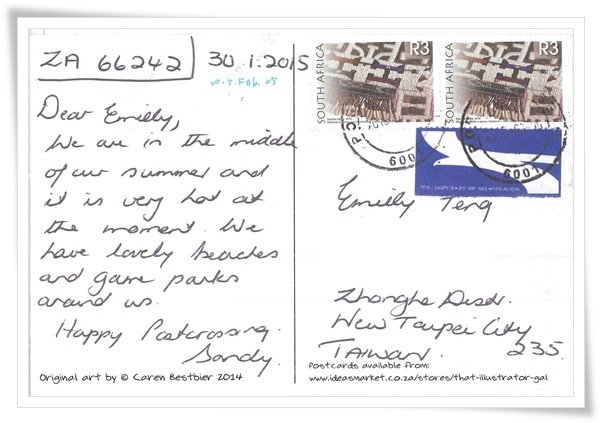 ZA 66242
30.1.2015
Dear Emilly,
We are in the middle
of our summer and
it is very hot at
the moment. We
have lovely beaches
and game parks
around us.
Happy Postcrossing.
Sandy.
Original art by © Caren Bestbier 2014
SOUTH AFRICA R3
SOUTH AFRICA R3
6001
6001
Emilly Teng
Zhonghe Distr.
New Taipei City
TAIWAN. 235.
Postcards available from:
www.ideasmarket.co.za/stores/that-illustrator-gal